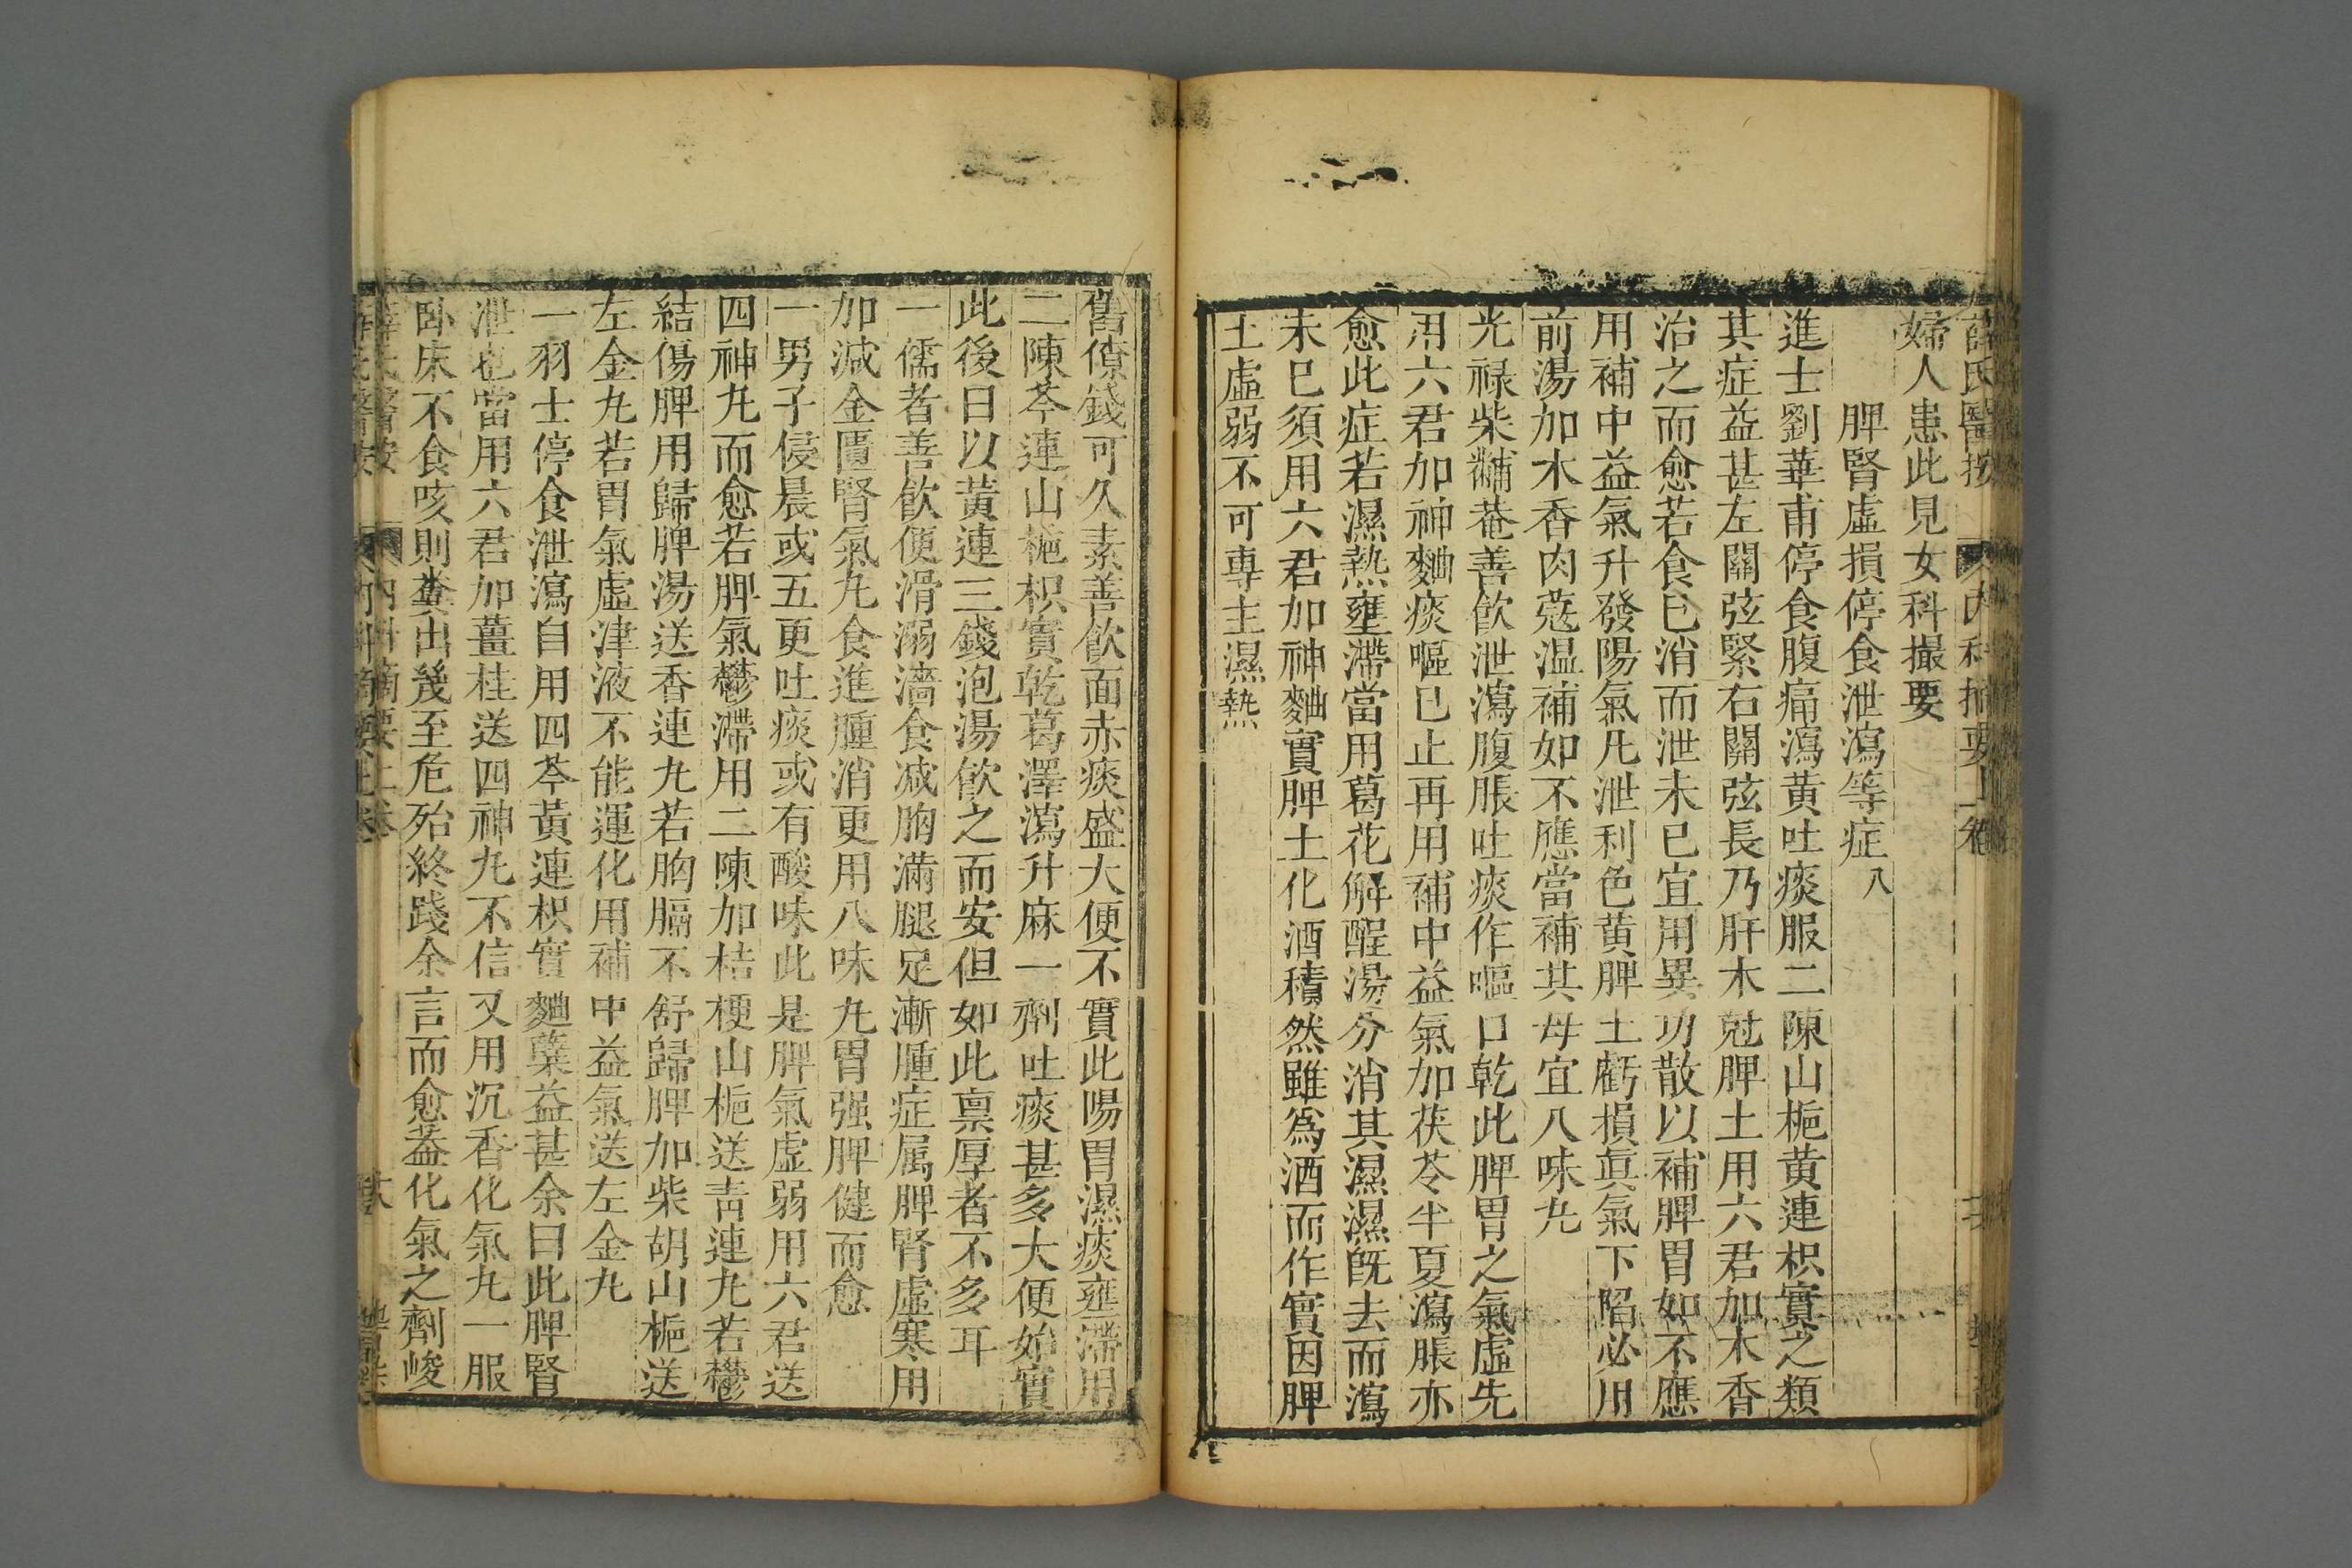 薛氏醫按 內科摘要上卷
婦人患此見女科撮要
脾腎虛損停食泄瀉等症八
進士劉華甫停食腹痛瀉黄吐痰服二陳山梔黄連枳實之類
其症益甚左關弦緊右關弦長乃肝木尅脾土用六君加木香
治之而愈若食已消而泄未已宜用異功散以補脾胃如不應
用補中益氣升發陽氣凡泄利色黄脾土虧損眞氣下陷必用
前湯加木香肉蔻温補如不應當補其母宜八味丸
光禄柴黼菴善飲泄瀉腹脹吐痰作嘔口乾此脾胃之氣虛先
用六君加神麯痰嘔已止再用補中益氣加茯苓半夏瀉脹亦
愈此症若濕熱壅滯當用葛花解酲湯分消其濕濕旣去而瀉
未已須用六君加神麯實脾土化酒積然雖爲酒而作實因脾
土虛弱不可專主濕熱
舊僚錢可久素善飲面赤痰盛大便不實此陽胃濕痰壅滯用
二陳芩連山梔枳實乾葛澤瀉升麻一劑吐痰甚多大便始實
此後日以黃連三錢泡湯飲之而安但如此禀厚者不多耳
一儒者善飲便滑溺濇食减胸滿腿足漸腫症属脾腎虛寒用
加减金匱腎氣丸食進腫消更用八味丸胃强脾健而愈
一男子侵晨或五更吐痰或有酸味此是脾氣虛弱用六君送
四神丸而愈若脾氣鬱滯用二陳加桔梗山梔送青連丸若鬱
結傷脾用歸脾湯送香連丸若胸膈不舒歸脾加柴胡山梔送
左金丸若胃氣虛津液不能運化用補中益氣送左金丸
一羽士停食泄瀉自用四苓黃連枳實麯蘖益甚余曰此脾腎
泄也當用六君加薑桂送四神丸不信又用沉香化氣丸一服
卧床不食咳則糞出幾至危殆終踐余言而愈葢化氣之劑峻
薛氏醫按 內科摘要上卷